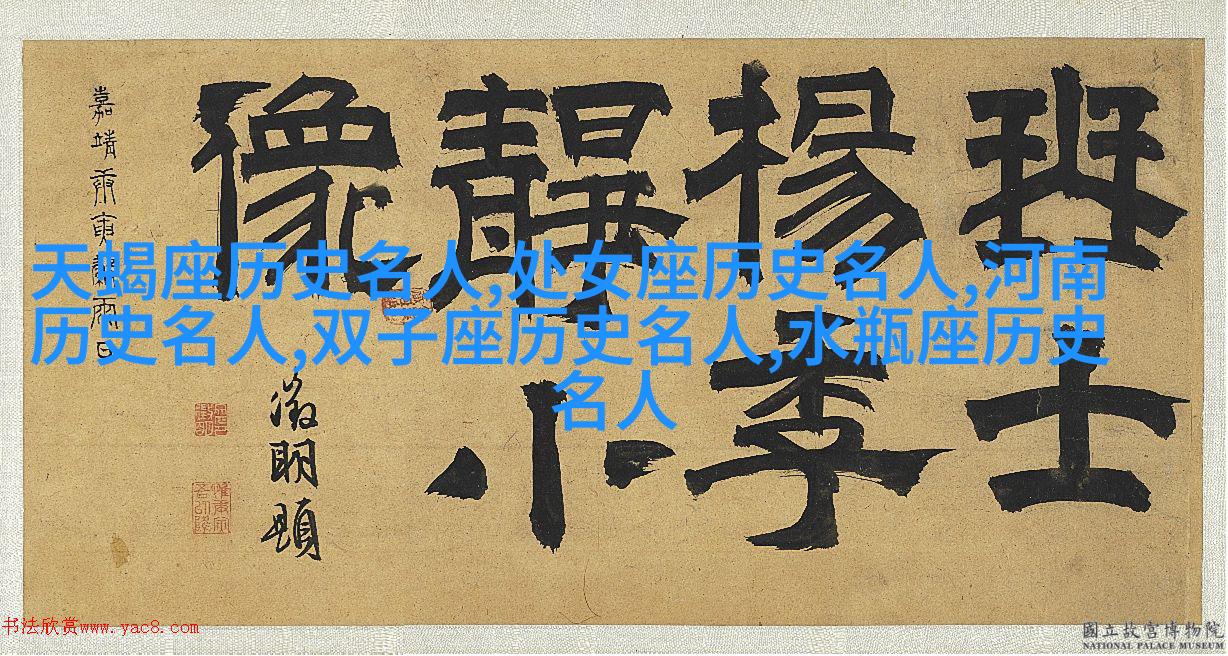 班士
楊季
靜小
像
嘉靖庚寅雨日
徵明題
天蝎座历史名人,处女座历史名人,河南
历史名人,双子座历史名人,水瓶座历史
名人
书法欣赏www.yac8.com
國立故宮博物院
NATIONAL PALACE MUSEUM